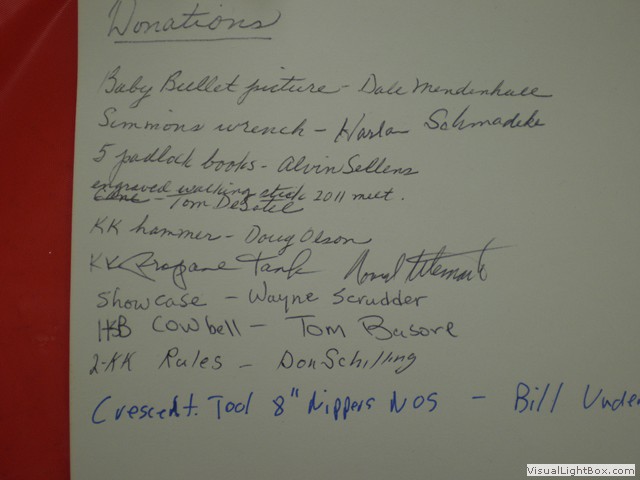 Donations
Baby Bullet picture - Dale Mendenhall
Simmons wrench - Harlan Schmadeke
5 padlock books - Alvin Sellens
engraved walking stick 2011 meet.
Cane - Tom DeSotel
KK hammer - Doug Olson
KK Propane Tank
Showcase - Wayne Scrudder
HSB Cowbell - Tom Busore
2-KK Rules - Don Schilling
Crescent Tool 8" Nippers NOS - Bill Unde
VisualLightBox.com